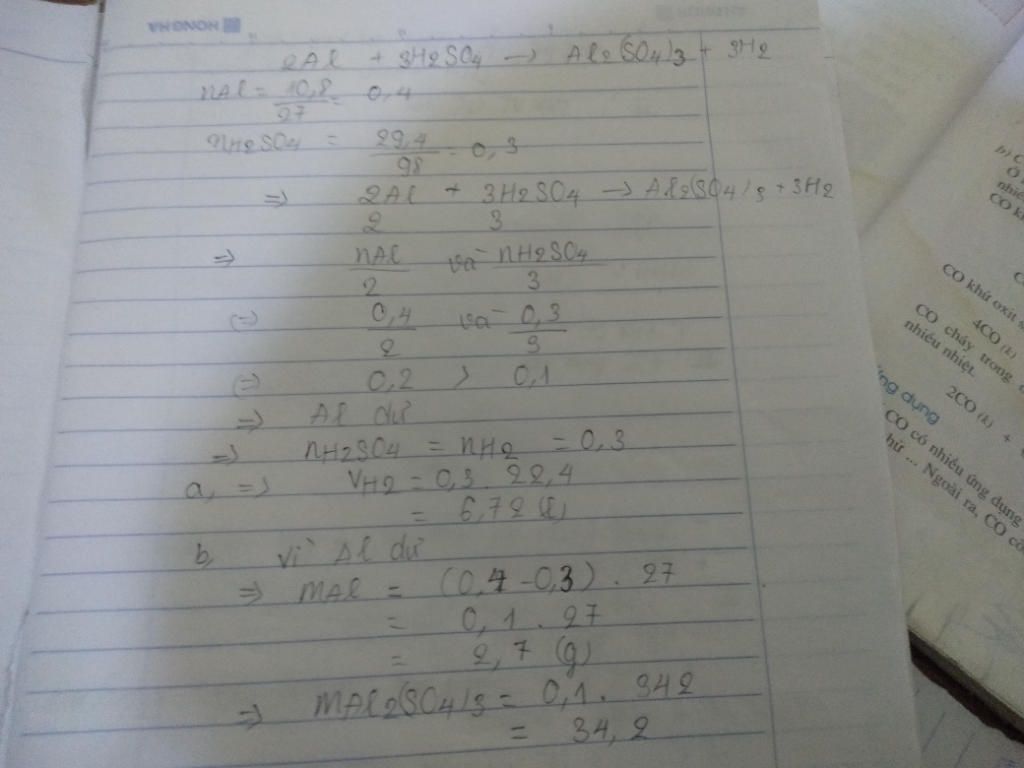 HONG HA
2Al + 3H2SO4 → Al2(SO4)3 + 3H2
nAl = 10,8/27 = 0,4
nH2SO4 = 29,4/98 = 0,3
=> 2Al + 3H2SO4 → Al2(SO4)3 + 3H2
2 3
=> nAl/2 và nH2SO4/3
(=) 0,4/2 và 0,3/3
(=) 0,2 > 0,1
=> Al dư
=> nH2SO4 = nH2 = 0,3
a, => VH2 = 0,3 . 22,4
= 6,72 (l)
b, Vì Al dư
=> mAl = (0,4 - 0,3) . 27
= 0,1 . 27
= 2,7 (g)
=> mAl2(SO4)3 = 0,1 . 342
= 34,2
b) C
nhiề
CO kh
CO khử oxit s
4CO (k)
CO cháy trong
nhiều nhiệt.
2CO (k) +
ứng dụng
CO có nhiều ứng dụng
khử ... Ngoài ra, CO cò